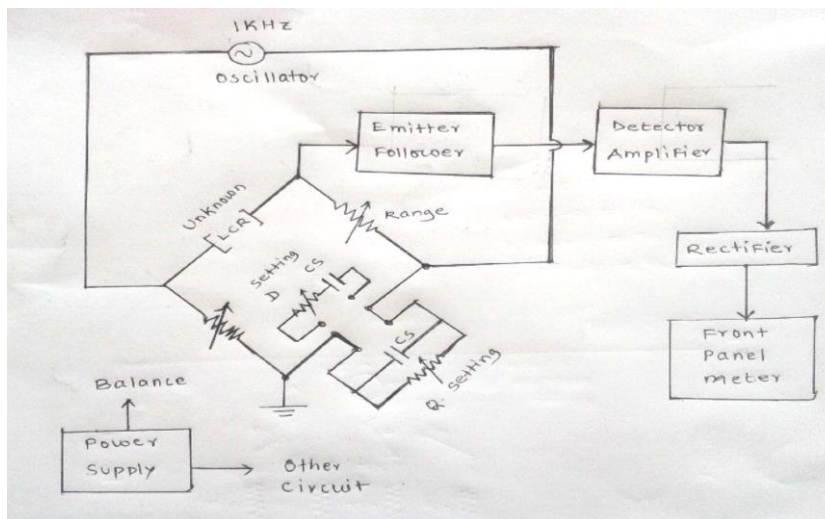 1KHz
Oscillator
Emitter
Follower
Detector
Amplifier
Unknown
LCR
Range
Setting
D
CS
Rectifier
CS
Q-setting
Front
Panel
meter
Balance
Power
Supply
Other
Circuit